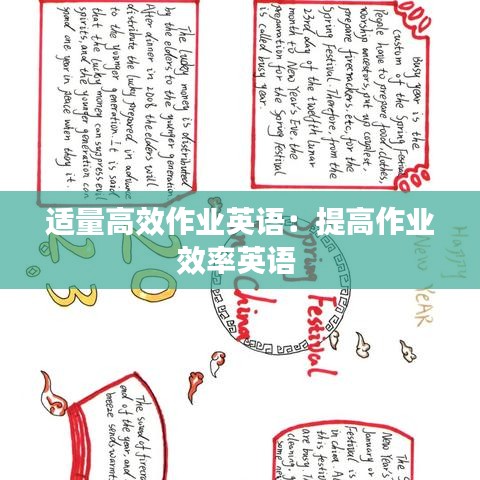 适量高效作业英语：提高作业
效率英语
The lucky money is distributed
by the elders to the younger generation
After dinner in 2006 the elders will
distribute the lucky prepared in advance
to the younger generation. It is said
that the lucky money can suppress evil
spirits, and the younger generation can
spend one year in peace when they it.
busy year is the
custom of the Spring Festival
People have to prepare food, clothes,
worship ancestors, put up couplex,
prepare firecrackers, etc, for the
Spring Festival. Therefore, from the
23rd day of the twelfth lunar
month to New Year's Eve, the
preparation for the Spring Festival
is called busy year.
Happy
New YeAR
20
2.3
Spring Festival
in China
The sound of firecra
end of the year, and
breeze sends warmt
The S
New Year's
January or
Festival is
in China. A
this festiv
are busy.
cleaning,
some new